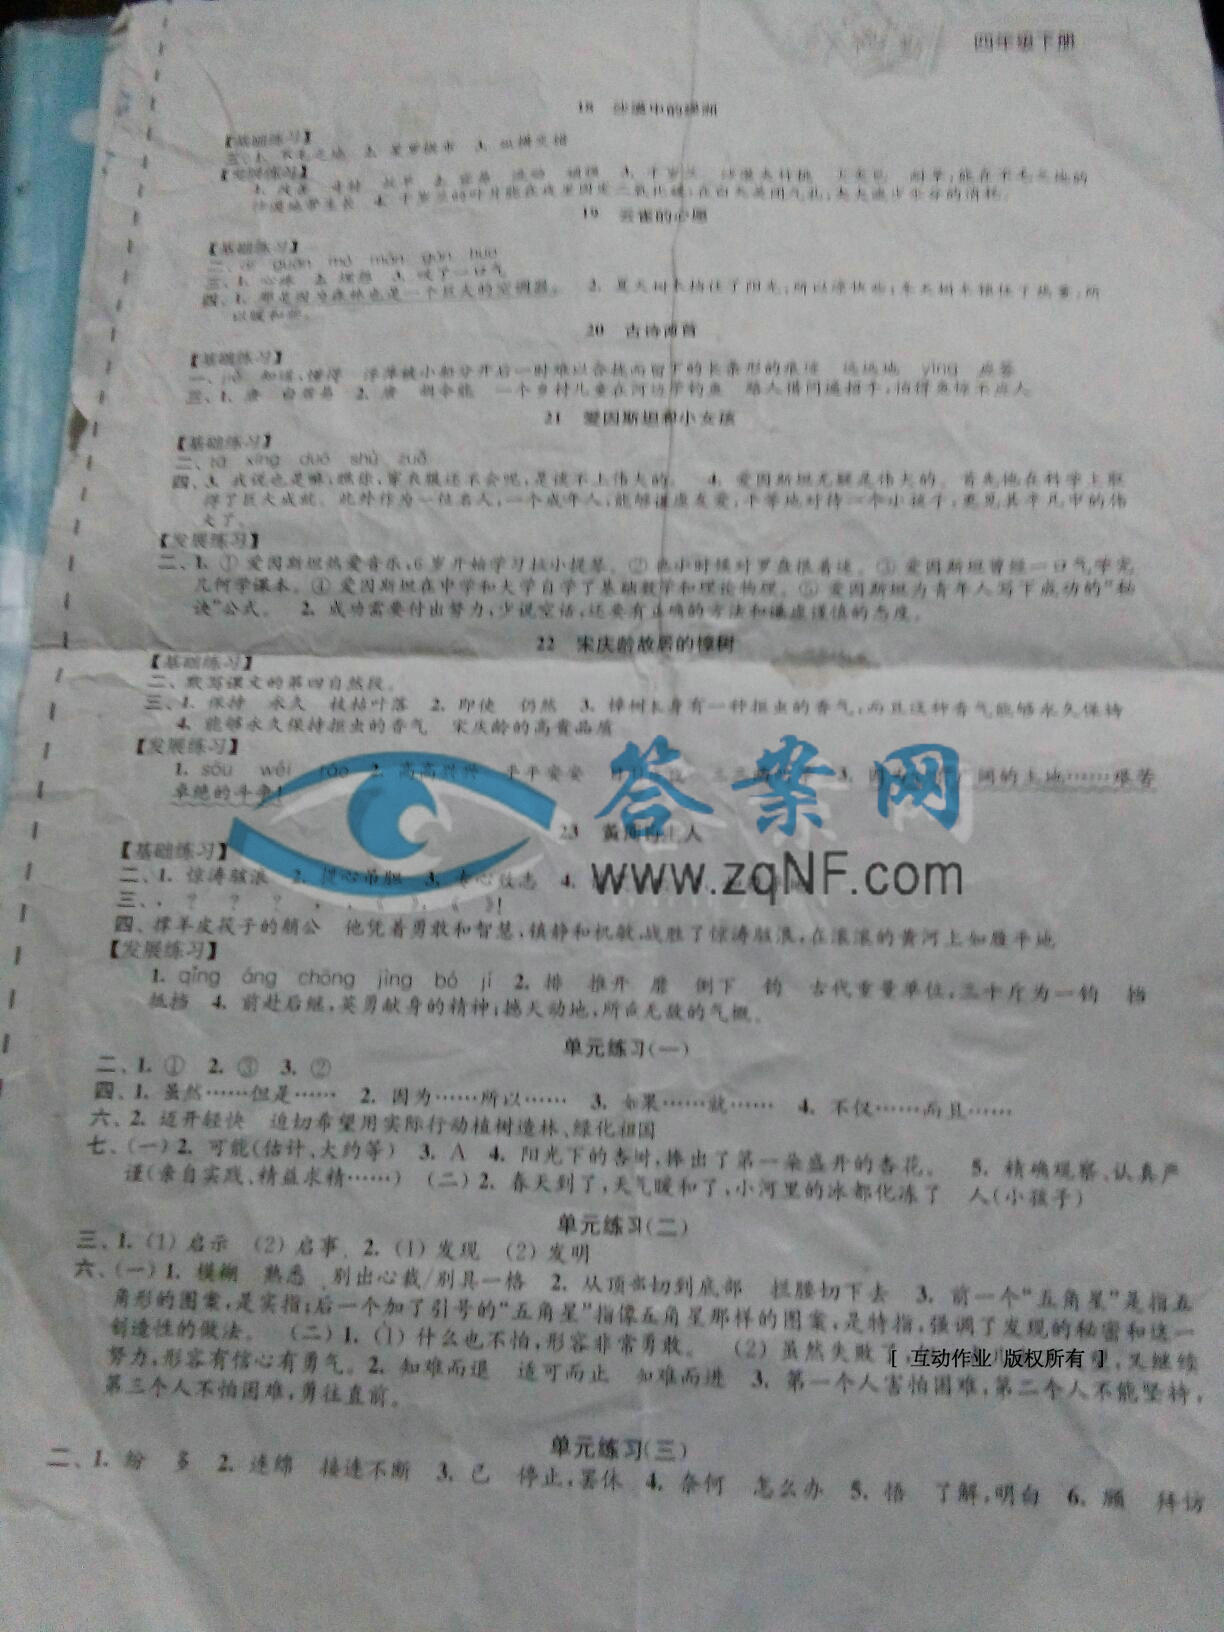 四年级下册
18 沙漠中的绿洲
【基础练习】
三、1. 不毛之地 2. 星罗棋布 3. 纵横交错
【发展练习】
沙漠地带生长。 4. 千岁兰的叶片能在夜里固定二氧化碳；在白天关闭气孔，大大减少水分的消耗。
19 云雀的心愿
【基础练习】
三、1. 心疼 2. 埋怨 3. 叹了一口气
四、1. 那是因为森林也是一个巨大的空调器。 2. 夏天树木挡住了阳光，所以凉快些；冬天树木留住了热量，所
以暖和些。
20 古诗两首
【基础练习】
知道、懂得 浮萍被小船分开后一时难以合拢而留下的长条形的痕迹 远远地 yìng 应答
三、1. 唐 白居易 2. 唐 胡令能 一个乡村儿童在河边学钓鱼 路人借问遥招手，怕得鱼惊不应人
21 爱因斯坦和小女孩
【基础练习】
四、3. 我说也是嘛，瞧你，穿衣服还不会呢，是谈不上伟大的。 4. 爱因斯坦无疑是伟大的。首先他在科学上取
得了巨大成就。此外作为一位名人，一个成年人，能够谦虚友爱，平等地对待一个小孩子，更见其平凡中的伟
大了。
【发展练习】
二、1. ① 爱因斯坦热爱音乐，6岁开始学习拉小提琴。② 他小时候对罗盘很着迷。③ 爱因斯坦曾经一口气学完
几何学课本。④ 爱因斯坦在中学和大学自学了基础数学和理论物理。⑤ 爱因斯坦为青年人写下成功的“秘
诀”公式。 2. 成功需要付出努力，少说空话，还要有正确的方法和谦虚谨慎的态度。
22 宋庆龄故居的樟树
【基础练习】
二、默写课文的第四自然段。
三、1. 保持 永久 枝枯叶落 2. 即使 仍然 3. 樟树本身有一种拒虫的香气，而且这种香气能够永久保持
4. 能够永久保持拒虫的香气 宋庆龄的高贵品质
【发展练习】
1. sōu wēi 2. 高高兴兴 平平安安 3. 因为 阔的土地……艰苦
卓绝的斗争！
答案网
www.zqNF.com
23 黄河的主人
【基础练习】
二、1. 惊涛骇浪 2. 提心吊胆 3. 专心致志 4.
三、， ？ ？ ？ ， ， 《 》、《 》！
四、撑羊皮筏子的艄公 他凭着勇敢和智慧，镇静和机敏，战胜了惊涛骇浪，在滚滚的黄河上如履平地
【发展练习】
1. qīng áng chōng jīng bó jí 2. 排 推开 靡 倒下 钧 古代重量单位，三十斤为一钧 挡
抵挡 4. 前赴后继，英勇献身的精神；撼天动地，所向无敌的气概。
单元练习（一）
二、1. ① 2. ③ 3. ②
四、1. 虽然……但是…… 2. 因为……所以…… 3. 如果……就…… 4. 不仅……而且……
六、2. 迈开轻快 迫切希望用实际行动植树造林、绿化祖国
七、（一）2. 可能（估计、大约等） 3. A 4. 阳光下的杏树，捧出了第一朵盛开的杏花。 5. 精确观察、认真严
谨（亲自实践、精益求精……） （二）2. 春天到了，天气暖和了，小河里的冰都化冻了 人（小孩子）
单元练习（二）
三、1.（1）启示 （2）启事 2.（1）发现 （2）发明
六、（一）1. 模糊 熟悉 别出心裁/别具一格 2. 从顶部切到底部 拦腰切下去 3. 前一个“五角星”是指五
角形的图案，是实指；后一个加了引号的“五角星”指像五角星那样的图案，是特指，强调了发现的秘密和这一
创造性的做法。 （二）1.（1）什么也不怕，形容非常勇敢。 （2）虽然失败了， ，又继续
[ 互动作业 版权所有 ]
努力，形容有信心有勇气。 2. 知难而退 适可而止 知难而进 3. 第一个人害怕困难，第二个人不能坚持，
第三个人不怕困难，勇往直前。
单元练习（三）
二、1. 纷 多 2. 连绵 接连不断 3. 已 停止，罢休 4. 奈何 怎么办 5. 悟 了解，明白 6. 顾 拜访